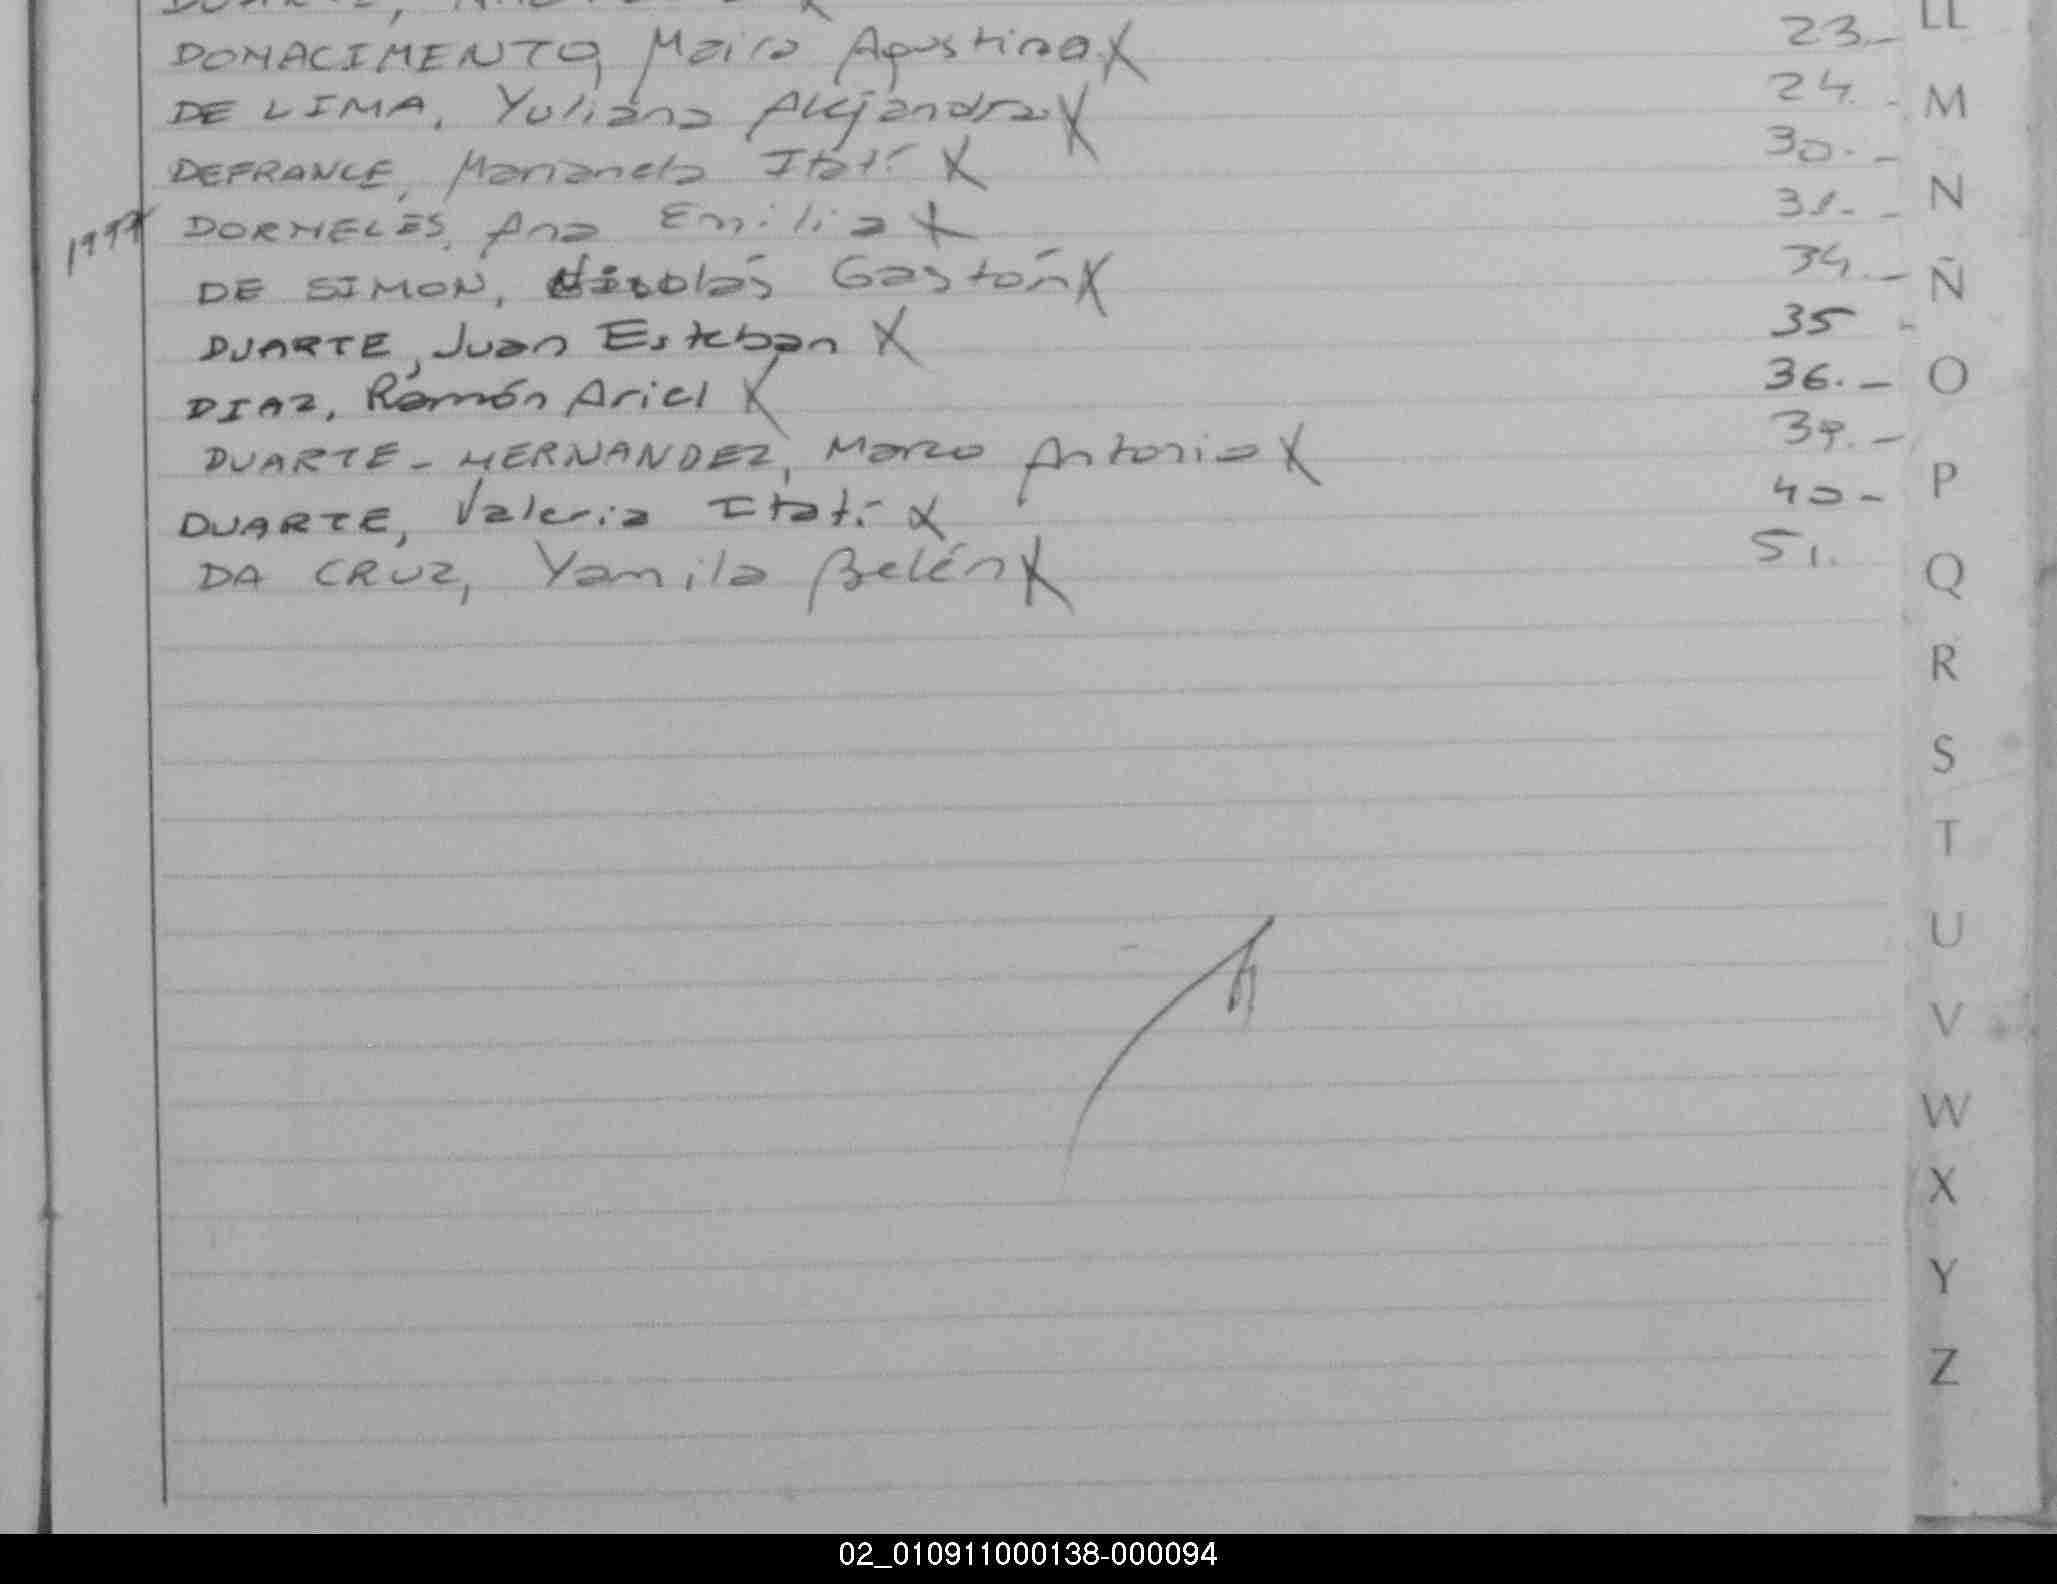 DUARTE,
DONACIMENTO, Maira Agustina X 23.-
DE LIMA, Yuliana Alejandra X 24.-
DEFRANCE, Marianela Itatí X 30.-
1997 DORNELES, Ana Emilia X 31.-
DE SIMON, Nicolás Gastón X 34.-
DUARTE, Juan Esteban X 35-
DIAZ, Ramón Ariel X 36.-
DUARTE-HERNANDEZ, Marco Antonio X 39.-
DUARTE, Valeria Itatí X 40-
DA CRUZ, Yamila Belén X 51.
LL
M
N
Ñ
O
P
Q
R
S
T
U
V
W
X
Y
Z
02_010911000138-000094